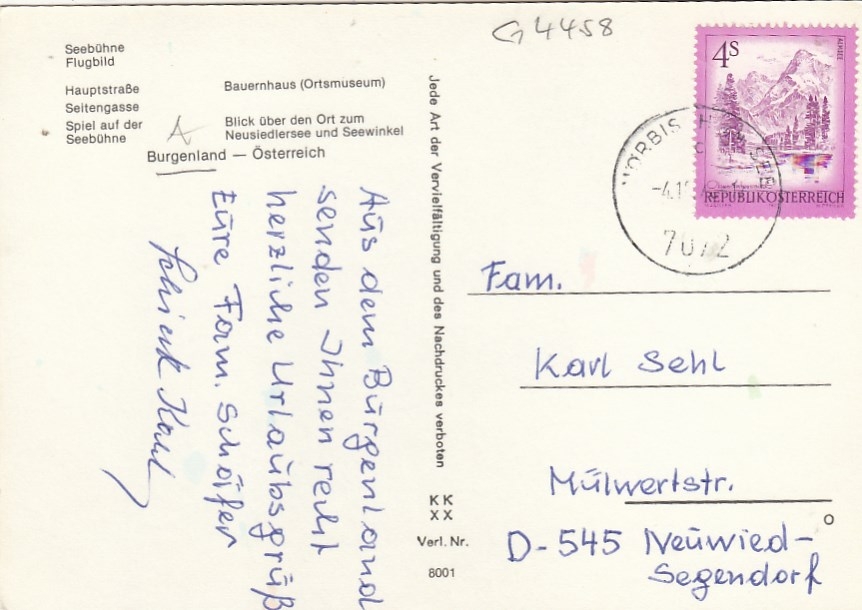 G 4458
Seebühne
Flugbild
Hauptstraße
Seitengasse
Spiel auf der
Seebühne
Bauernhaus (Ortsmuseum)
Blick über den Ort zum
Neusiedlersee und Seewinkel
Burgenland — Österreich
Aus dem Burgenland
senden Ihnen recht
herzliche Urlaubsgrüß
Eure Fam. Schöffer
Jede Art der Vervielfältigung und des Nachdruckes verboten
KK
XX
Verl. Nr.
8001
4S
ALMSEE
REPUBLIK ÖSTERREICH
7072
Fam.
Karl Sehl
Mülwertstr.
D-545 Neuwied-
Segendorf